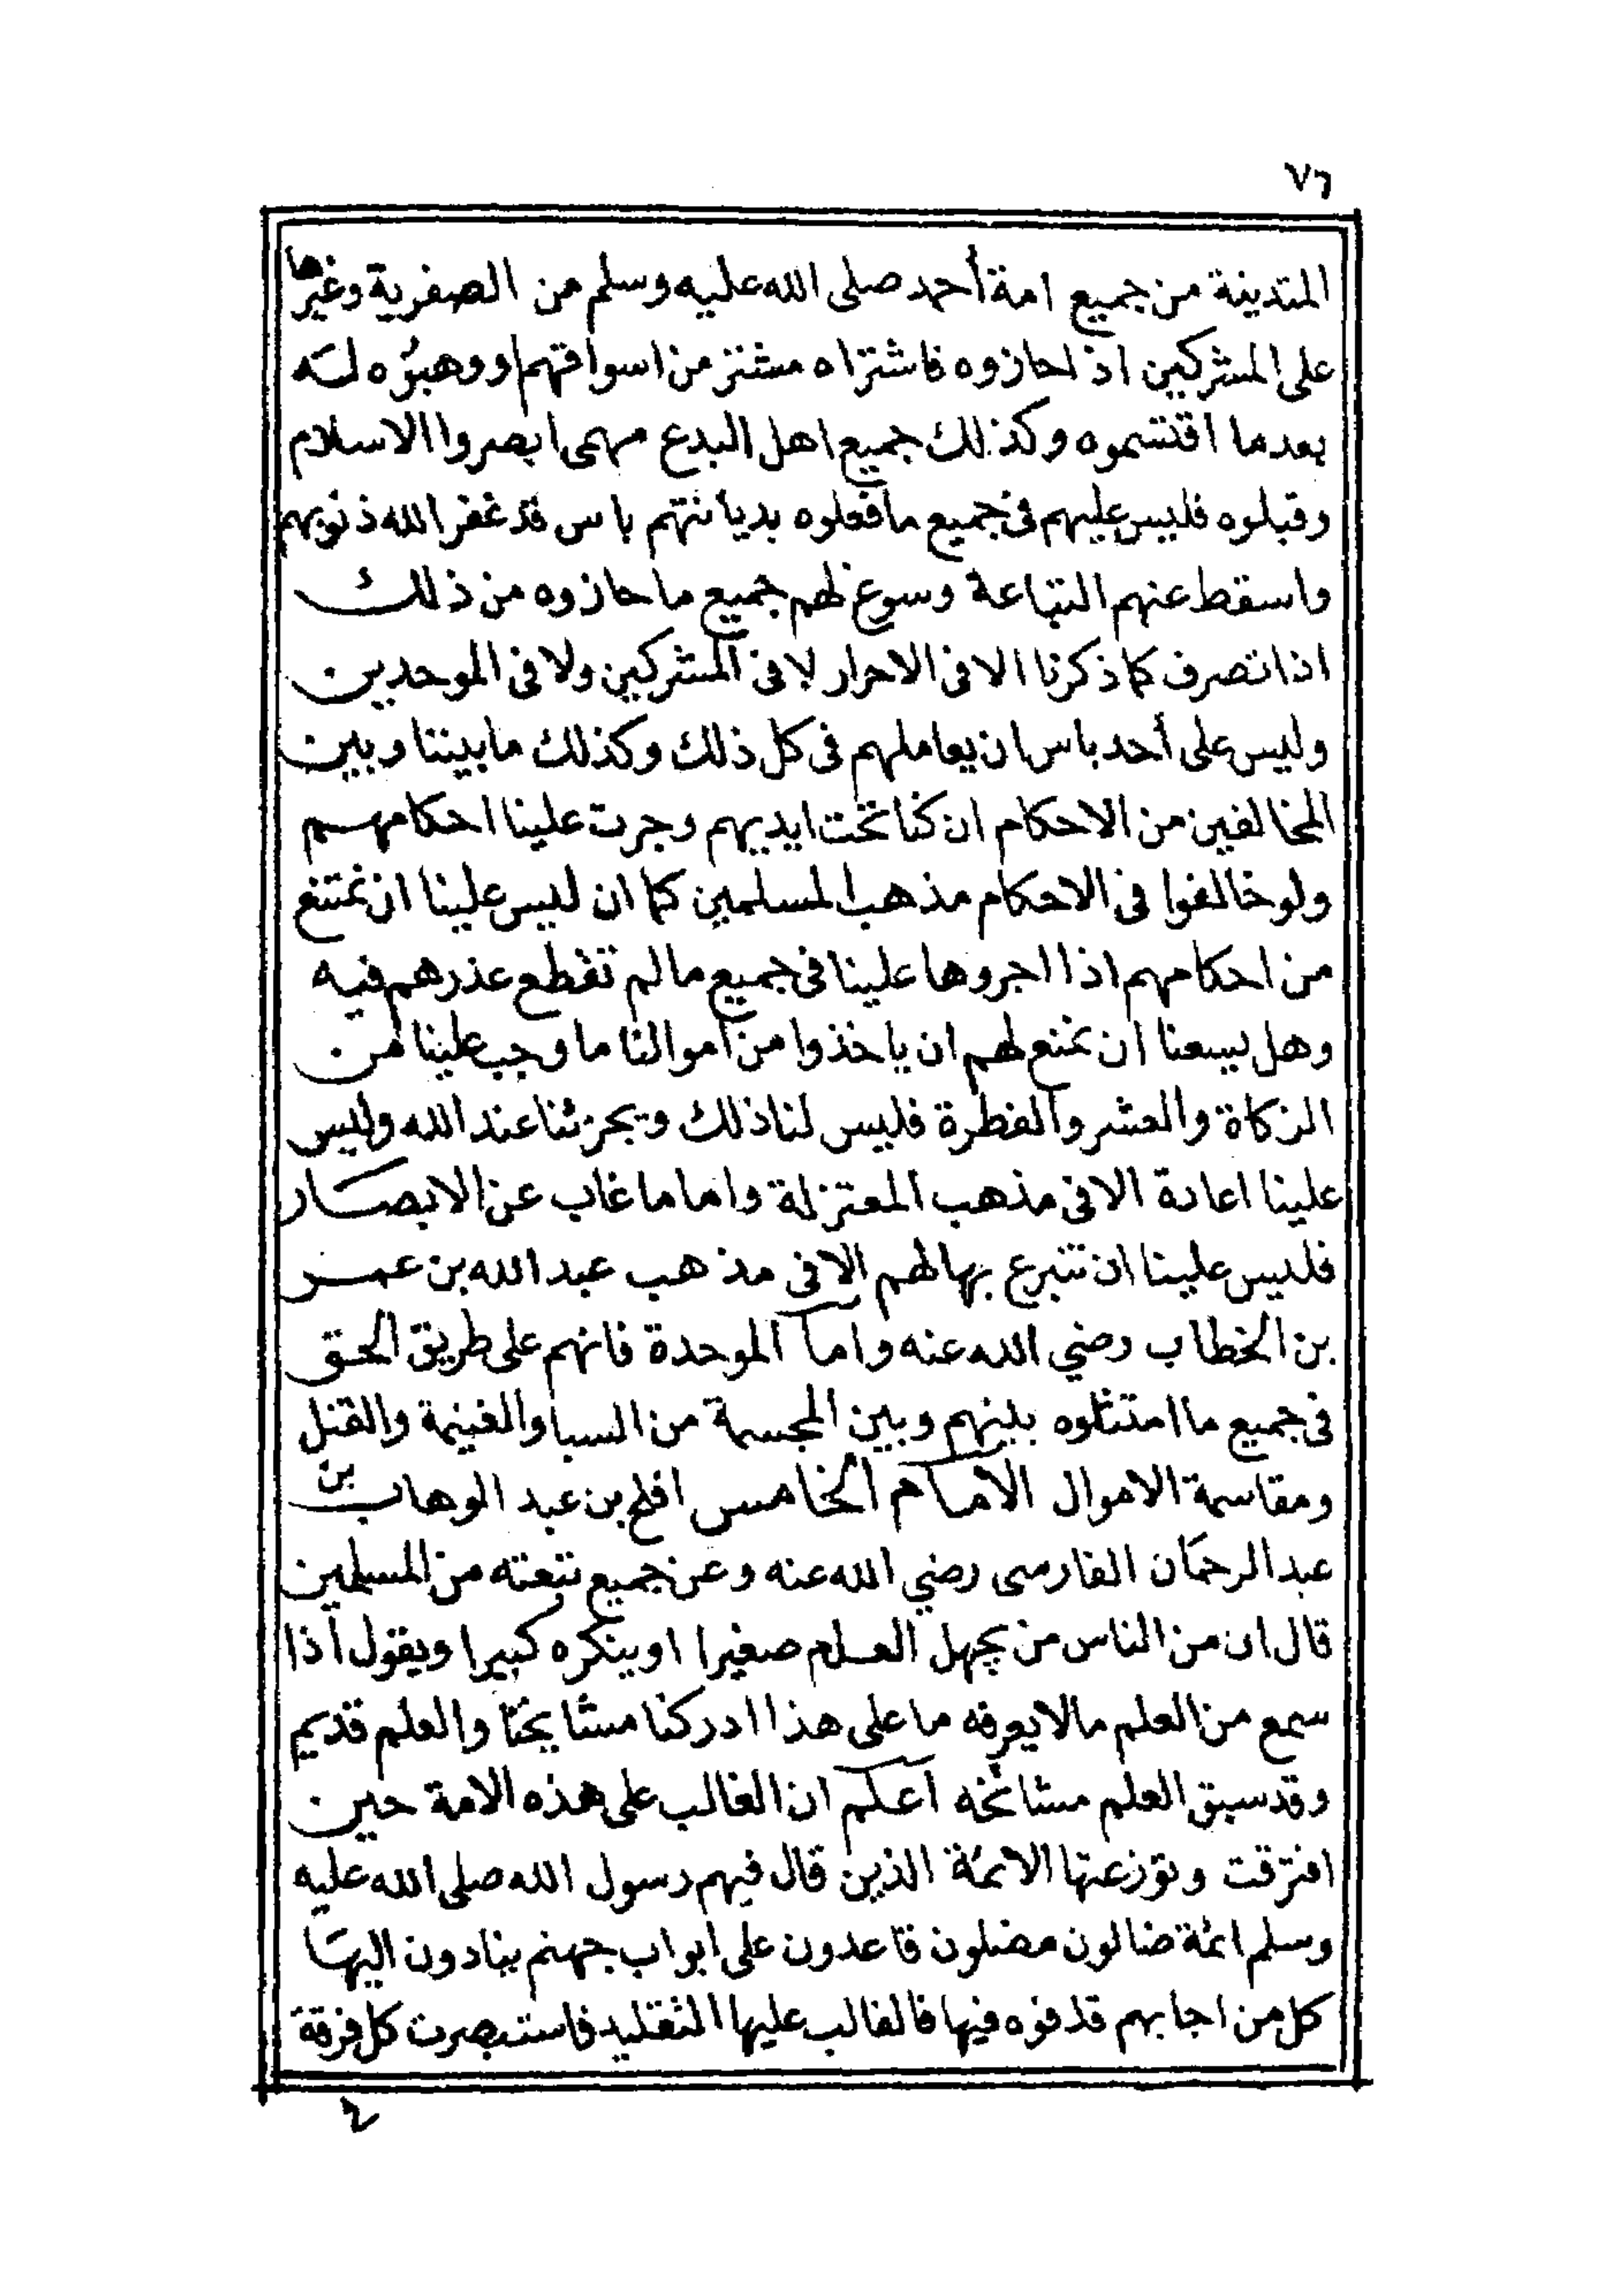 ٧٦
المتدينة من جميع امة أحمد صلى الله عليه وسلم من الصفرية وغيرها
على المشركين اذا حازوه فاشتراه مشتر من اسواقهم او وهبوه له
بعد ما اقتسموه وكذلك جميع اهل البدع مهمى ابصروا الاسلام
وقبلوه فليس عليهم فى جميع ما فعلوه بديانتهم باس قد غفر الله ذنوبهم
واسقط عنهم التباعة وسوغ لهم جميع ما حازوه من ذلك
اذا تصرف كما ذكرنا الا فى الاحرار لا فى المشركين ولا فى الموحدين
وليس على أحد باس ان يعاملهم فى كل ذلك وكذلك ما بيننا وبين
المخالفين من الاحكام ان كنا تحت ايديهم وجرت علينا احكامهم
ولو خالفوا فى الاحكام مذهب المسلمين كما ان ليس علينا ان نمتنع
من احكامهم اذا اجروها علينا فى جميع ما لم تقطع عذرهم فيه
وهل يسعنا ان نمنع لهم ان ياخذوا من اموالنا ما وجب علينا من
الزكاة والعشر والفطرة فليس لنا ذلك ويجزئنا عند الله وليس
علينا اعادة الا فى مذهب المعتزلة واما ما غاب عن الابصار
فليس علينا ان نتبرع بها لهم الا فى مذهب عبد الله بن عمر
بن الخطاب رضي الله عنه واما الموحدة فانهم على طريق الحق
فى جميع ما امتثلوه بينهم وبين المجسمة من السبا والغنيمة والقتل
ومقاسمة الاموال الامام الخامس افلح بن عبد الوهاب بن
عبد الرحمان الفارسى رضي الله عنه وعن جميع تبعته من المسلمين
قال ان من الناس من يجهل العلم صغيرا او ينكره كبيرا ويقول اذا
سمع من العلم ما لا يعرفه ما على هذا ادركنا مشايخنا والعلم قديم
وقد سبق العلم مشائخه اعلم ان الغالب على هذه الامة حين
افترقت وتوزعتها الائمة الذين قال فيهم رسول الله صلى الله عليه
وسلم ائمة ضالون مضلون قاعدون على ابواب جهنم ينادون اليها
كل من اجابهم قذفوه فيها فالغالب عليها التقليد فاستبصرت كل فرقة